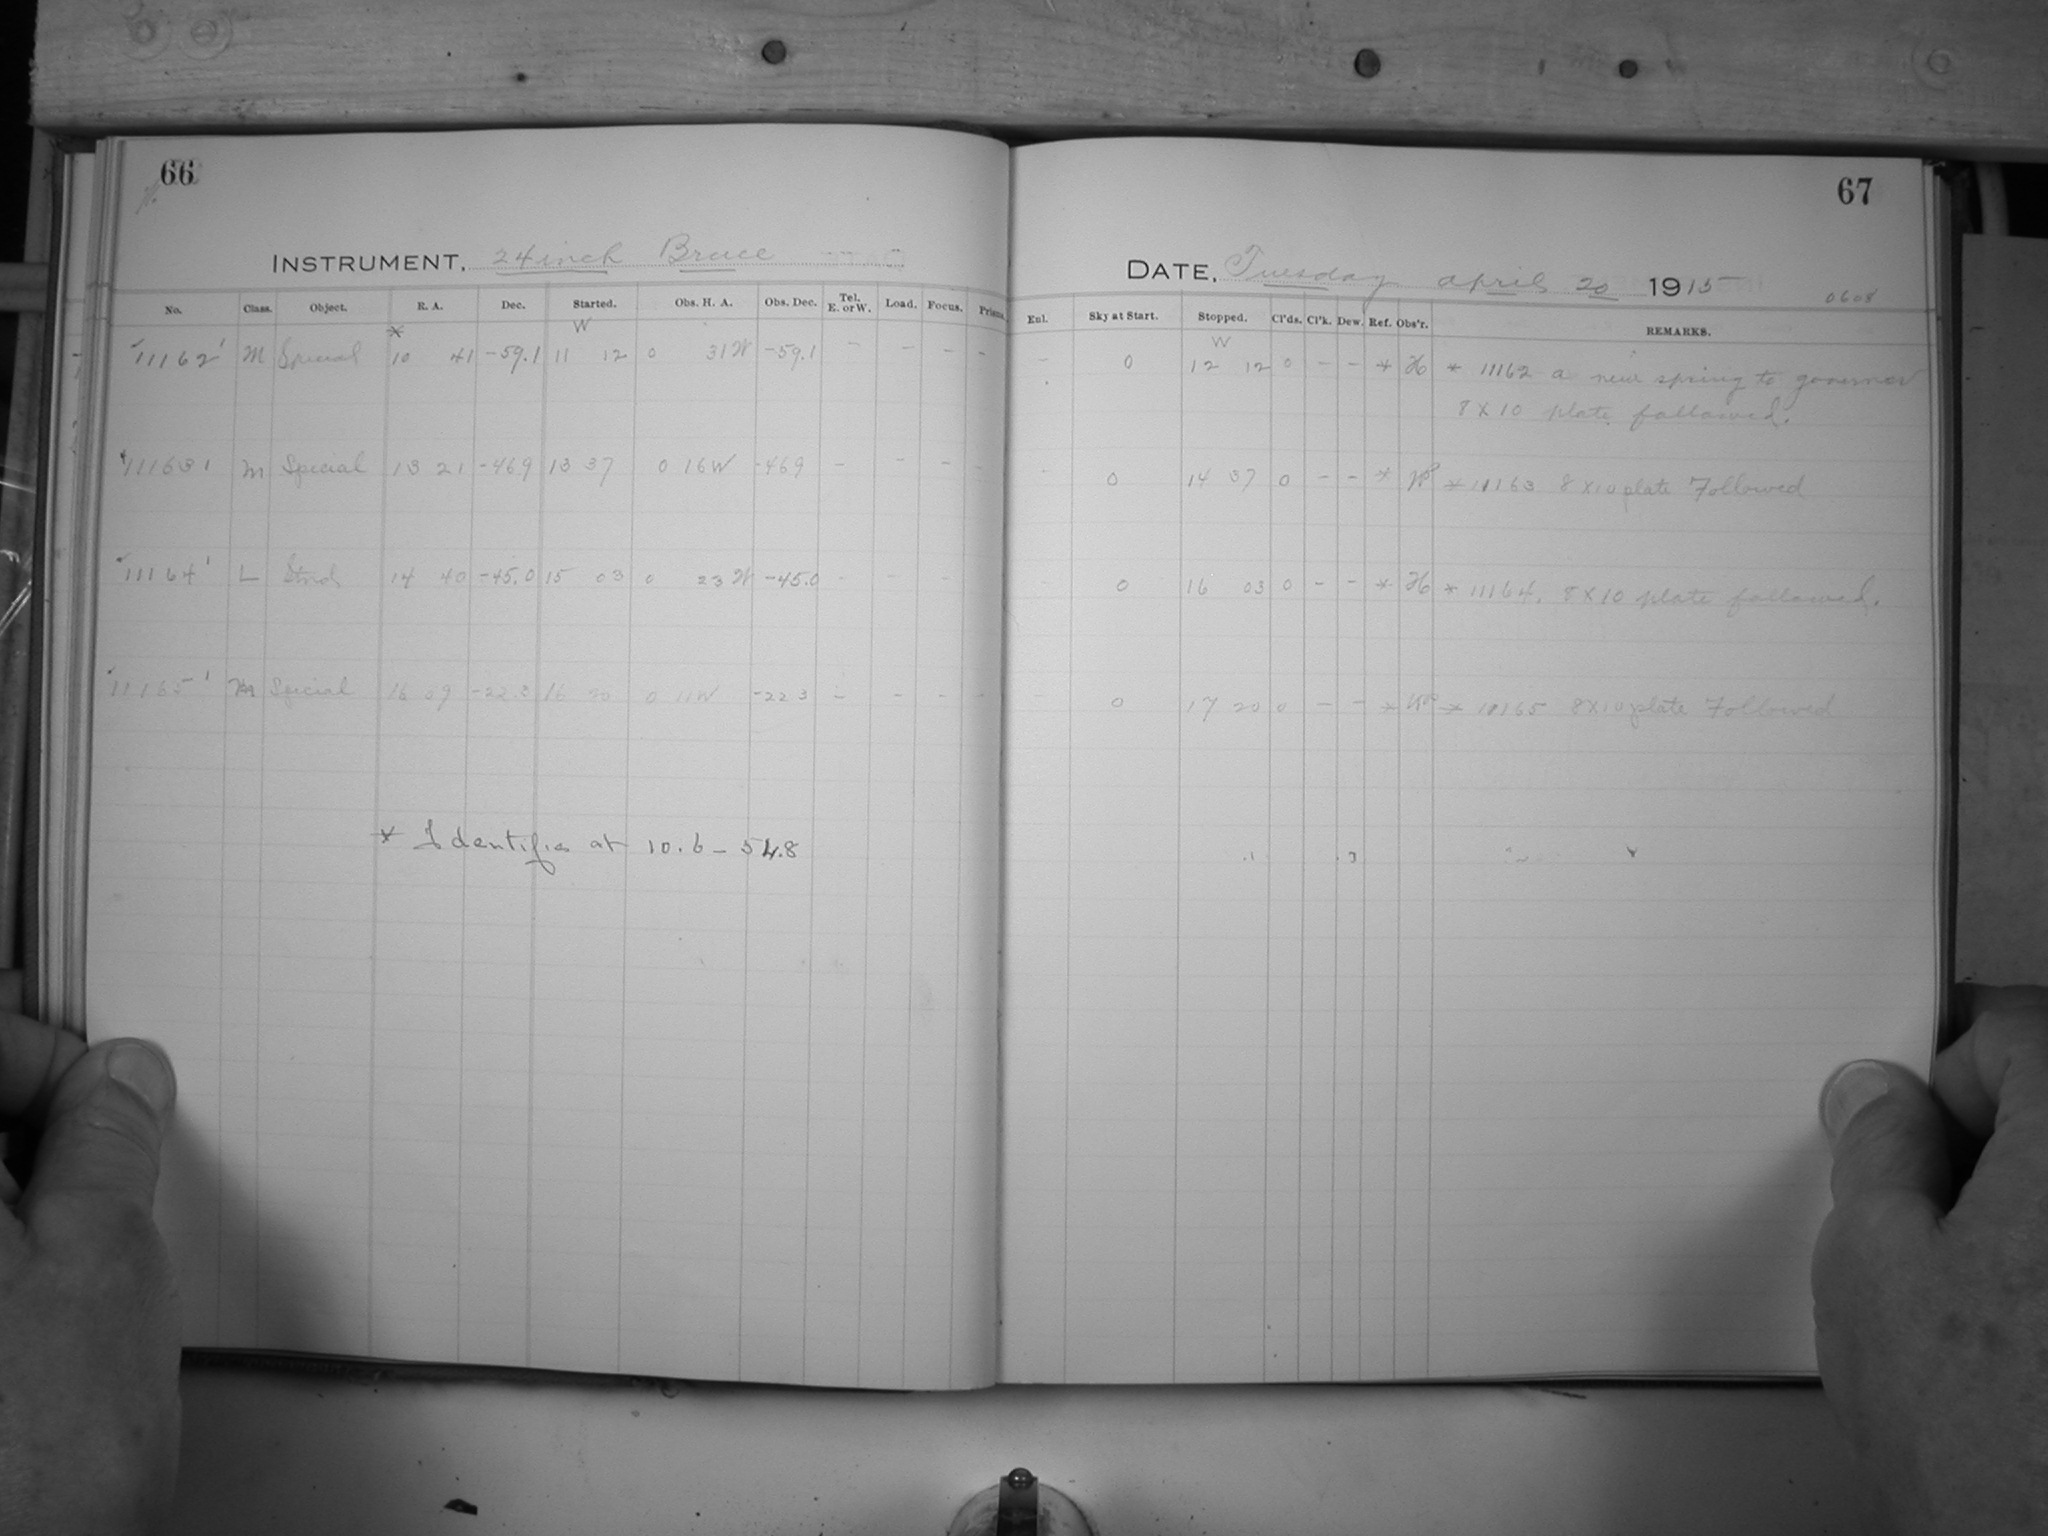 66
INSTRUMENT, 24 inch Bruce
No. Class. Object. R. A. Dec. Started. Obs. H. A. Obs. Dec. Tel. E. or W. Load. Focus. Prism.
* W
11162 M Special 10 41 -59.1 11 12 0 31W -59.1 - - - -
11163 M Special 13 21 -469 13 37 0 16W -469 - - - -
11164 L Stnd 14 40 -45.0 15 03 0 23W -45.0 - - -
11165 M Special 16 09 -22.3 16 20 0 11W -22 3 - - - -
* Identifies at 10.6 - 54.8
67
DATE, Tuesday april 20 1915
0608
Enl. Sky at Start. Stopped. Cl'ds. Cl'k. Dew. Ref. Obs'r. REMARKS.
W
- 0 12 12 0 - - * H * 11162 a new spring to governor
8 X 10 plate followed.
- 0 14 37 0 - - * * 11163 8 x 10 plate Followed
0 16 03 0 - - * H * 11164. 8 X 10 plate followed.
0 17 20 0 - - * * 11165 8X10 plate Followed